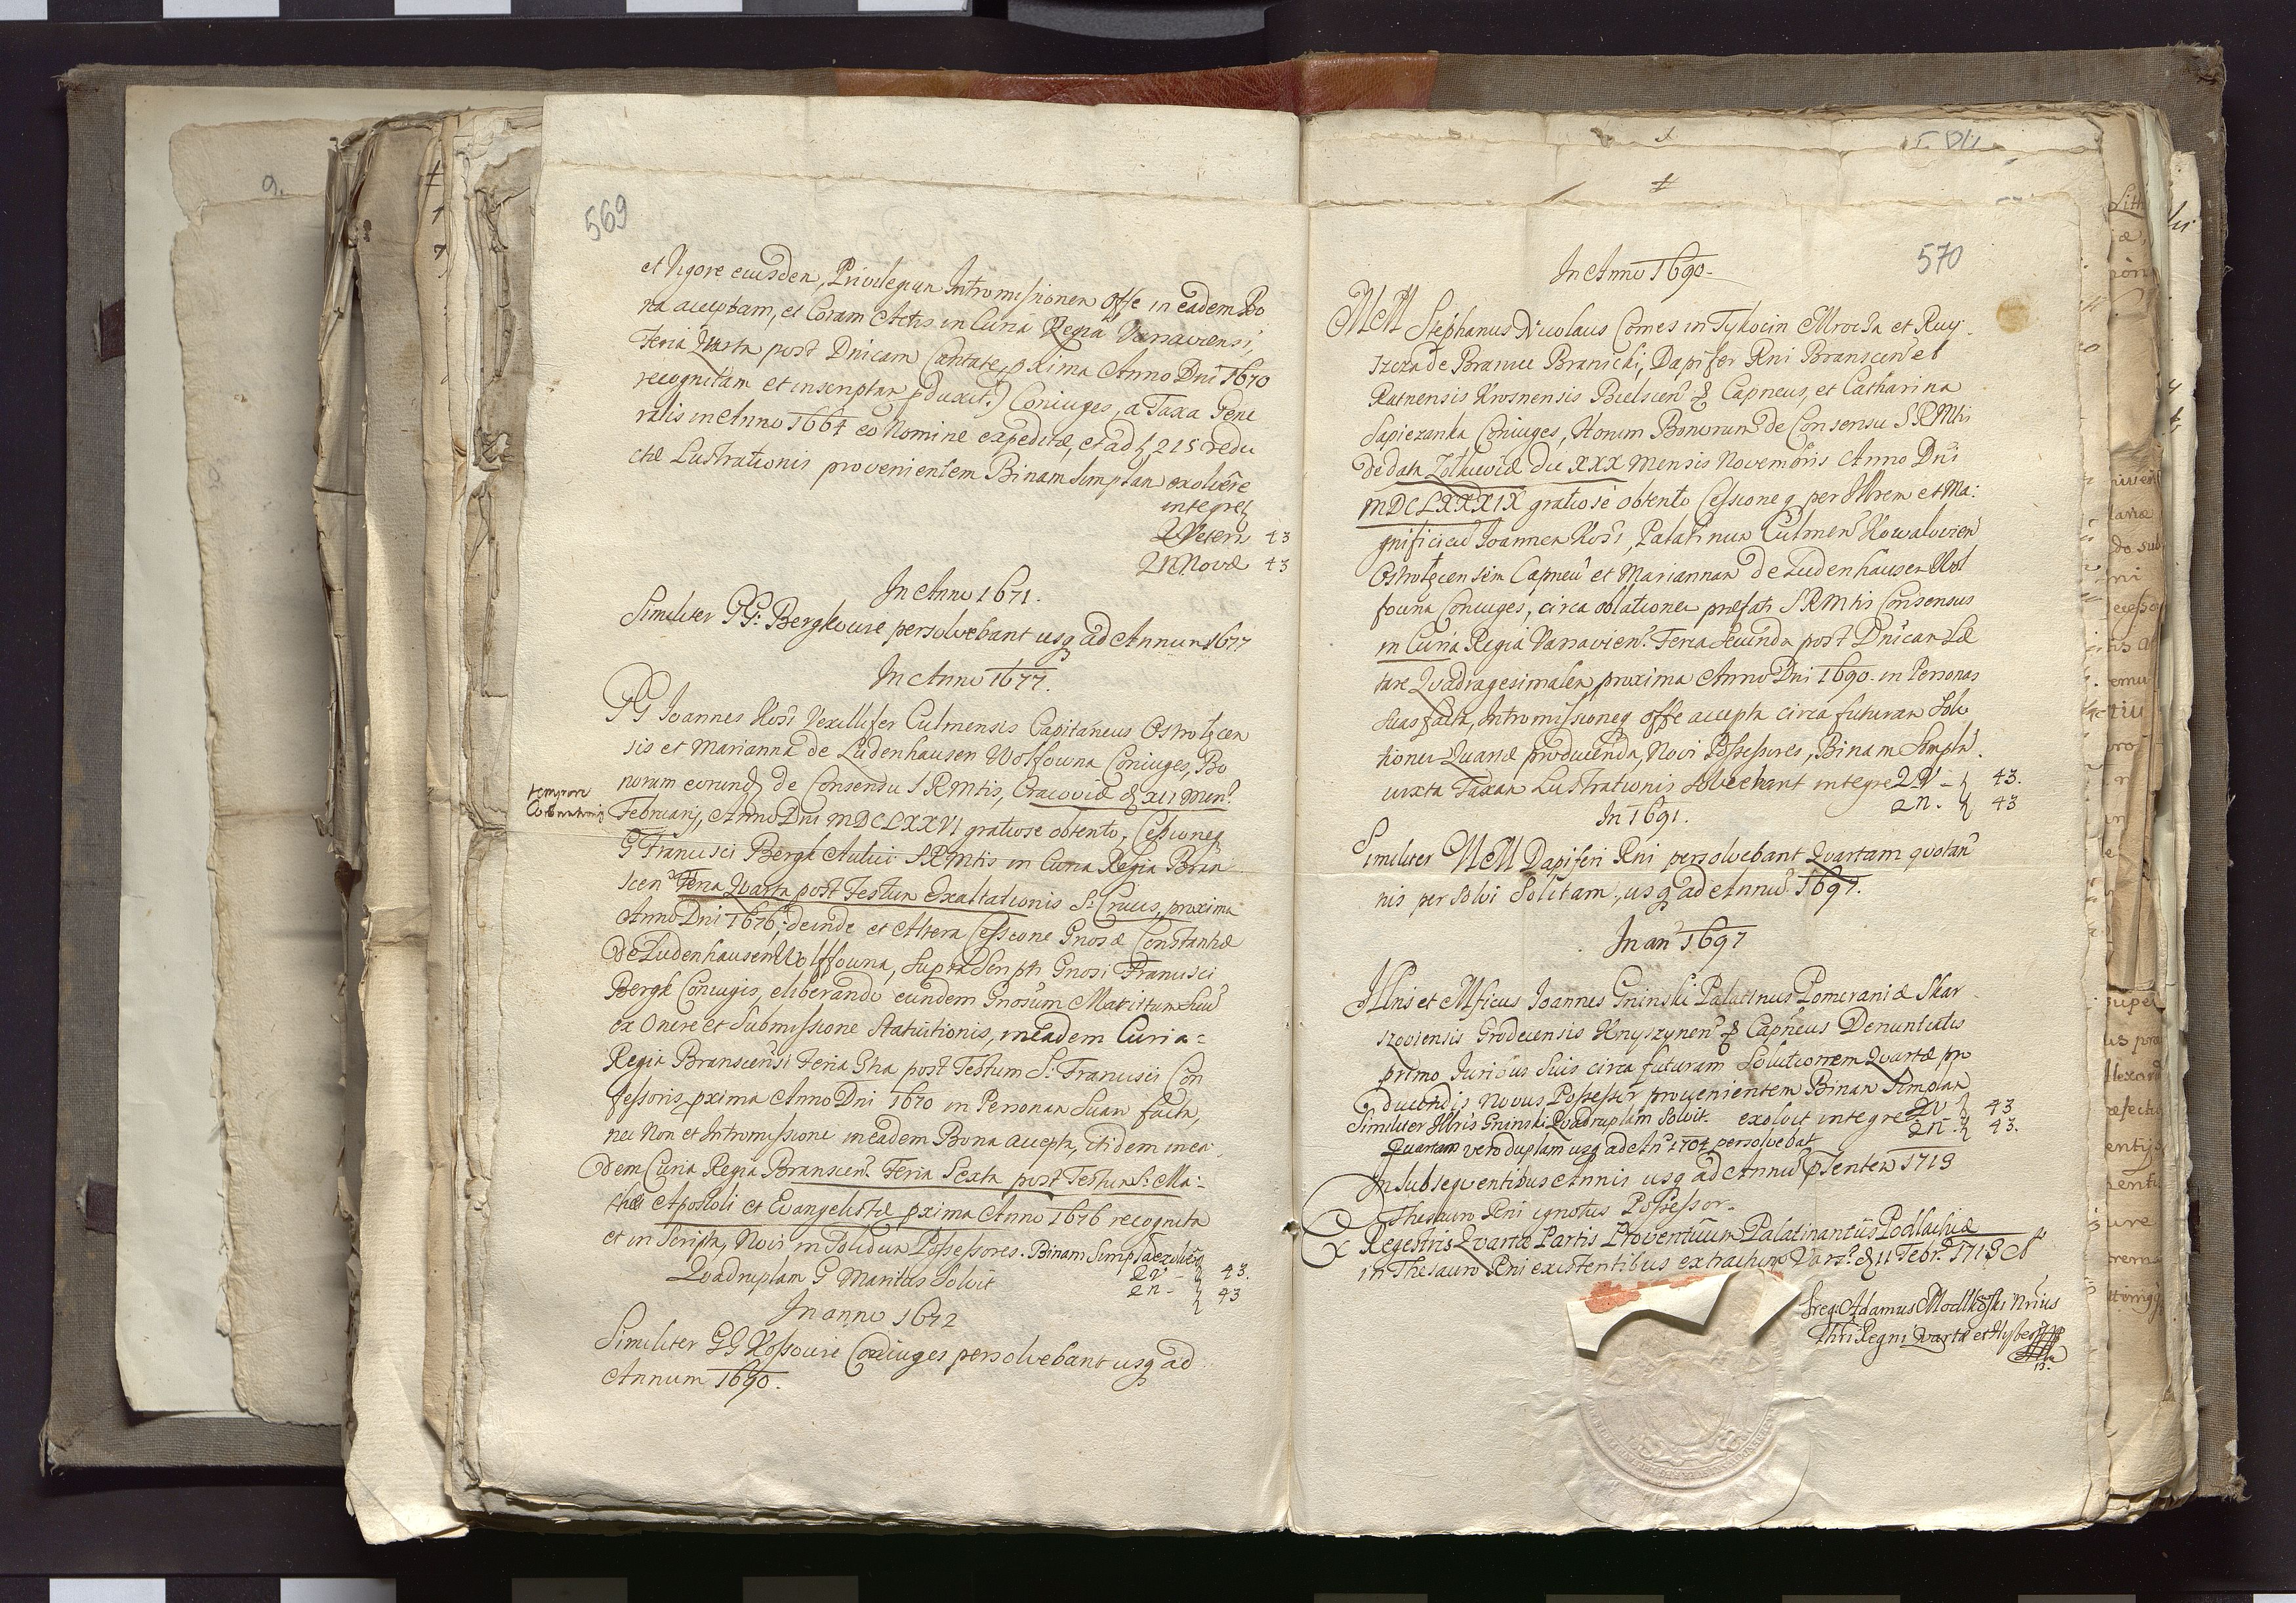 569
et Vigore eiusdem, Privilegium Intromissionem Offe in eadem Bo
na acceptam, et Coram Actis in Curia Regia Varsaviensi,
Feria Quarta post Dnicam Cantate pxima Anno Dni 1670
recognitam et inscriptam pduxit.) Coniuges, a Taxa Gene
ralis in Anno 1664 eo Nomine expeditæ, et ad f 215 redu
ctæ Lustrationis provenientem Binam Simplam exolvere
integre
2 Veteris 43
2 Novæ 43
In Anno 1671.
Similiter GG: Bergkowie persolvebant usq ad Annum 1677
In Anno 1677.
GG Joannes Kos Vexillifer Culmensis Capitaneus Ostrołęcen
sis et Marianna de Ludenhausen Wolfowna Coniuges, Bo
norum eorund de Consensu S R Mtis, Cracoviæ d XII Men.
tempore
Coronationis
Februarij, Anno Dni MDCLXXVI gratiose obtento, Cessioneq
G Francisci Bergk Aulici S R Mtis in Curia Regia Bran
scen Feria Quarta post Festum Exaltationis S. Crucis, proxima
Anno Dni 1676, deinde et Altera Cessione Gnosæ Constantiæ
de Ludenhausen Wolffowna, supra Scripti Gnosi Francisci
Bergk Coniugis, eliberando eundem Gnosum Maritum Suu
ex Onere et Submissione Statuitionis, in eadem Curia
Regia Branscensi Feria 5ta post Festum S. Francisci Con
fessoris pxima Anno Dni 1670 in Personam Suam facta,
nec Non et Intromissione in eadem Bona accepta, itidem in ea
dem Curia Regia Branscen. Feria Sexta post Festum S. Ma:
thæi Apostoli et Evangelistæ pxima Anno 1676 recognita
et in Scripta, Novi in Solidum Possessores. Binam Simplã exolver
Quadruplam G Maritus Solvit 2 V - f 43.
2 n - f 43
In anno 1672
Similiter GG Kossowie Coniuges persolvebant usq ad
Annum 1690.
570
In Anno 1690.
MM Stephanus Nicolaus Comes in Tykocin Mrocza et Ruy
szcza de Branice Branicki, Dapifer Rni Branscen et
Ratnensis Krosnensis Bielscen & Capneus, et Catharina
Sapiezanka Coniuges, Horum Bonorum de Consensu S R Mtis
de data Zolkieviæ die XXX Mensis Novembris Anno Dni
MDCLXXXIX gratiose obtento Cessioneq per Illrem et Ma:
gnificum Joannem Kos, Palatinum Culmen Kowalevien
Ostrołęcensem Capneu et Mariannam de Ludenhausen Wol
fowna Coniuges, circa oblationem præfati S R Mtis Consensus
in Curia Regia Varsavien. Feria Secunda post Dnicam Læ
tare Quadragesimalem proxima Anno Dni 1690 in Personas
Suas facta, Intromissioneq offe accepta circa futuram Solu
tionem Quartæ producenda, Novi Possessores, Binam Simplã
iuxta Taxam Lustrationis Solvebant integre 2 V - f 43.
2 n - f 43
In 1691.
Similiter MM Dapiferi Rni persolvebant Quartam quotan
nis persolvi Solitam, usq ad Annu 1697.
In an 1697
Illris et Mficus Joannes Gninski Palatinus Pomeraniæ Skar
szoviensis Grodecensis Knyszynen & Capneus Denuntiatis
primo Iuribus Suis circa futuram Solutionem Quartæ pro
ducendis novus Possessor provenientem Binam Simplam
exolvit integre 2 V f 43
Similiter Illris Gninski Quadruplam Solvit 2 n - f 43.
Quartam vero duplam usq ad An 1704 persolvebat
In Subsequentibus Annis usq ad Annu pntem 1713
Thesauro Rni ignotus Possessor.
Ex Regestris Quartæ Partis Proventuum Palatinantûs Podlachiæ
in Thesauro Rni existentibus extractum Vars. d 11 Febr. 1713 A
Greg. Adamus Modlkoski Nrius
Thri Regni Quartæ et Hyber